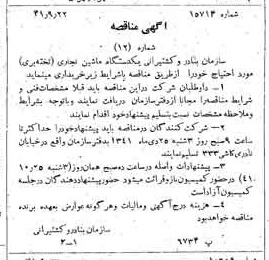 شماره ۱۵۷۱۴ ۴۱ر۹ر۲۲
آگهی مناقصه
شماره (۱۲)
سازمان بنادر و کشتیرانی یکدستگاه ماشین نجاری (تخته‌بری)
مورد احتیاج خود را از طریق مناقصه با شرایط زیر خریداری مینماید
۱ـ داوطلبان شرکت در این مناقصه باید قبلا مشخصات فنی و
شرایط مناقصه را مجانا از دفتر سازمان دریافت نمایند و با توجه بشرایط
و ملاحظه مشخصات نسبت بتسلیم پیشنهاد خود اقدام نمایند
۲ـ شرکت کنندگان در مناقصه باید پیشنهاد خود را حداکثر تا
ساعت ۹ صبح روز ۳ شنبه ۲۵ دی ماه ۱۳۴۱ بدفتر سازمان واقع در خیابان
نادری کاشی ۳۳۳ تسلیم نمایند
۳ـ پیشنهادات واصله در ساعت ده صبح همان روز (۳ شنبه ۲۵ر۱۰ر
۴۱) در حضور کمیسیون باز و قرائت میشود حضور پیشنهاد دهندگان در جلسه
کمیسیون آزاد است
۴ـ هزینه درج آگهی و مالیات و هر گونه عوارض بعهده برنده
مناقصه خواهد بود
سازمان بنادر و کشتیرانی
پ ۶۷۳۴ ۲ـ۱